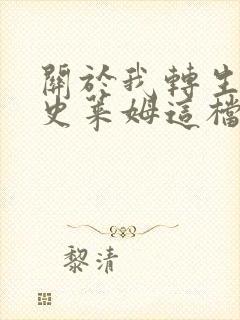 關於我轉生
史萊姆這檔
黎清